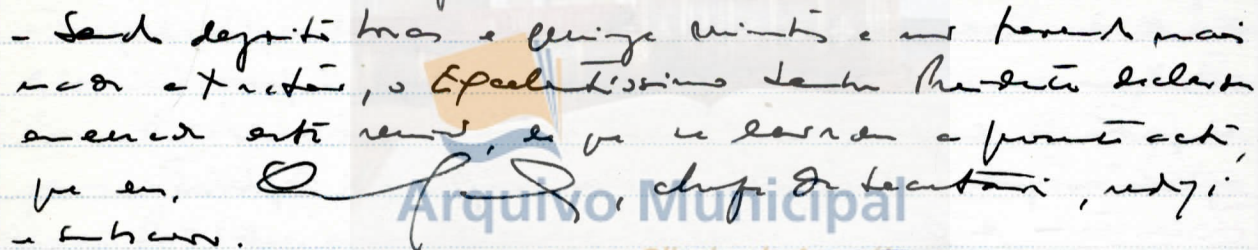 - Sendo dezoito horas e quinze minutos e não havendo mais
nada a tratar, o Excelentíssimo Senhor Presidente declarou
encerrada esta reunião, de que se lavrou a presente acta,
que eu, chefe da Secretaria, redigi
e subscrevo.
Arquivo Municipal